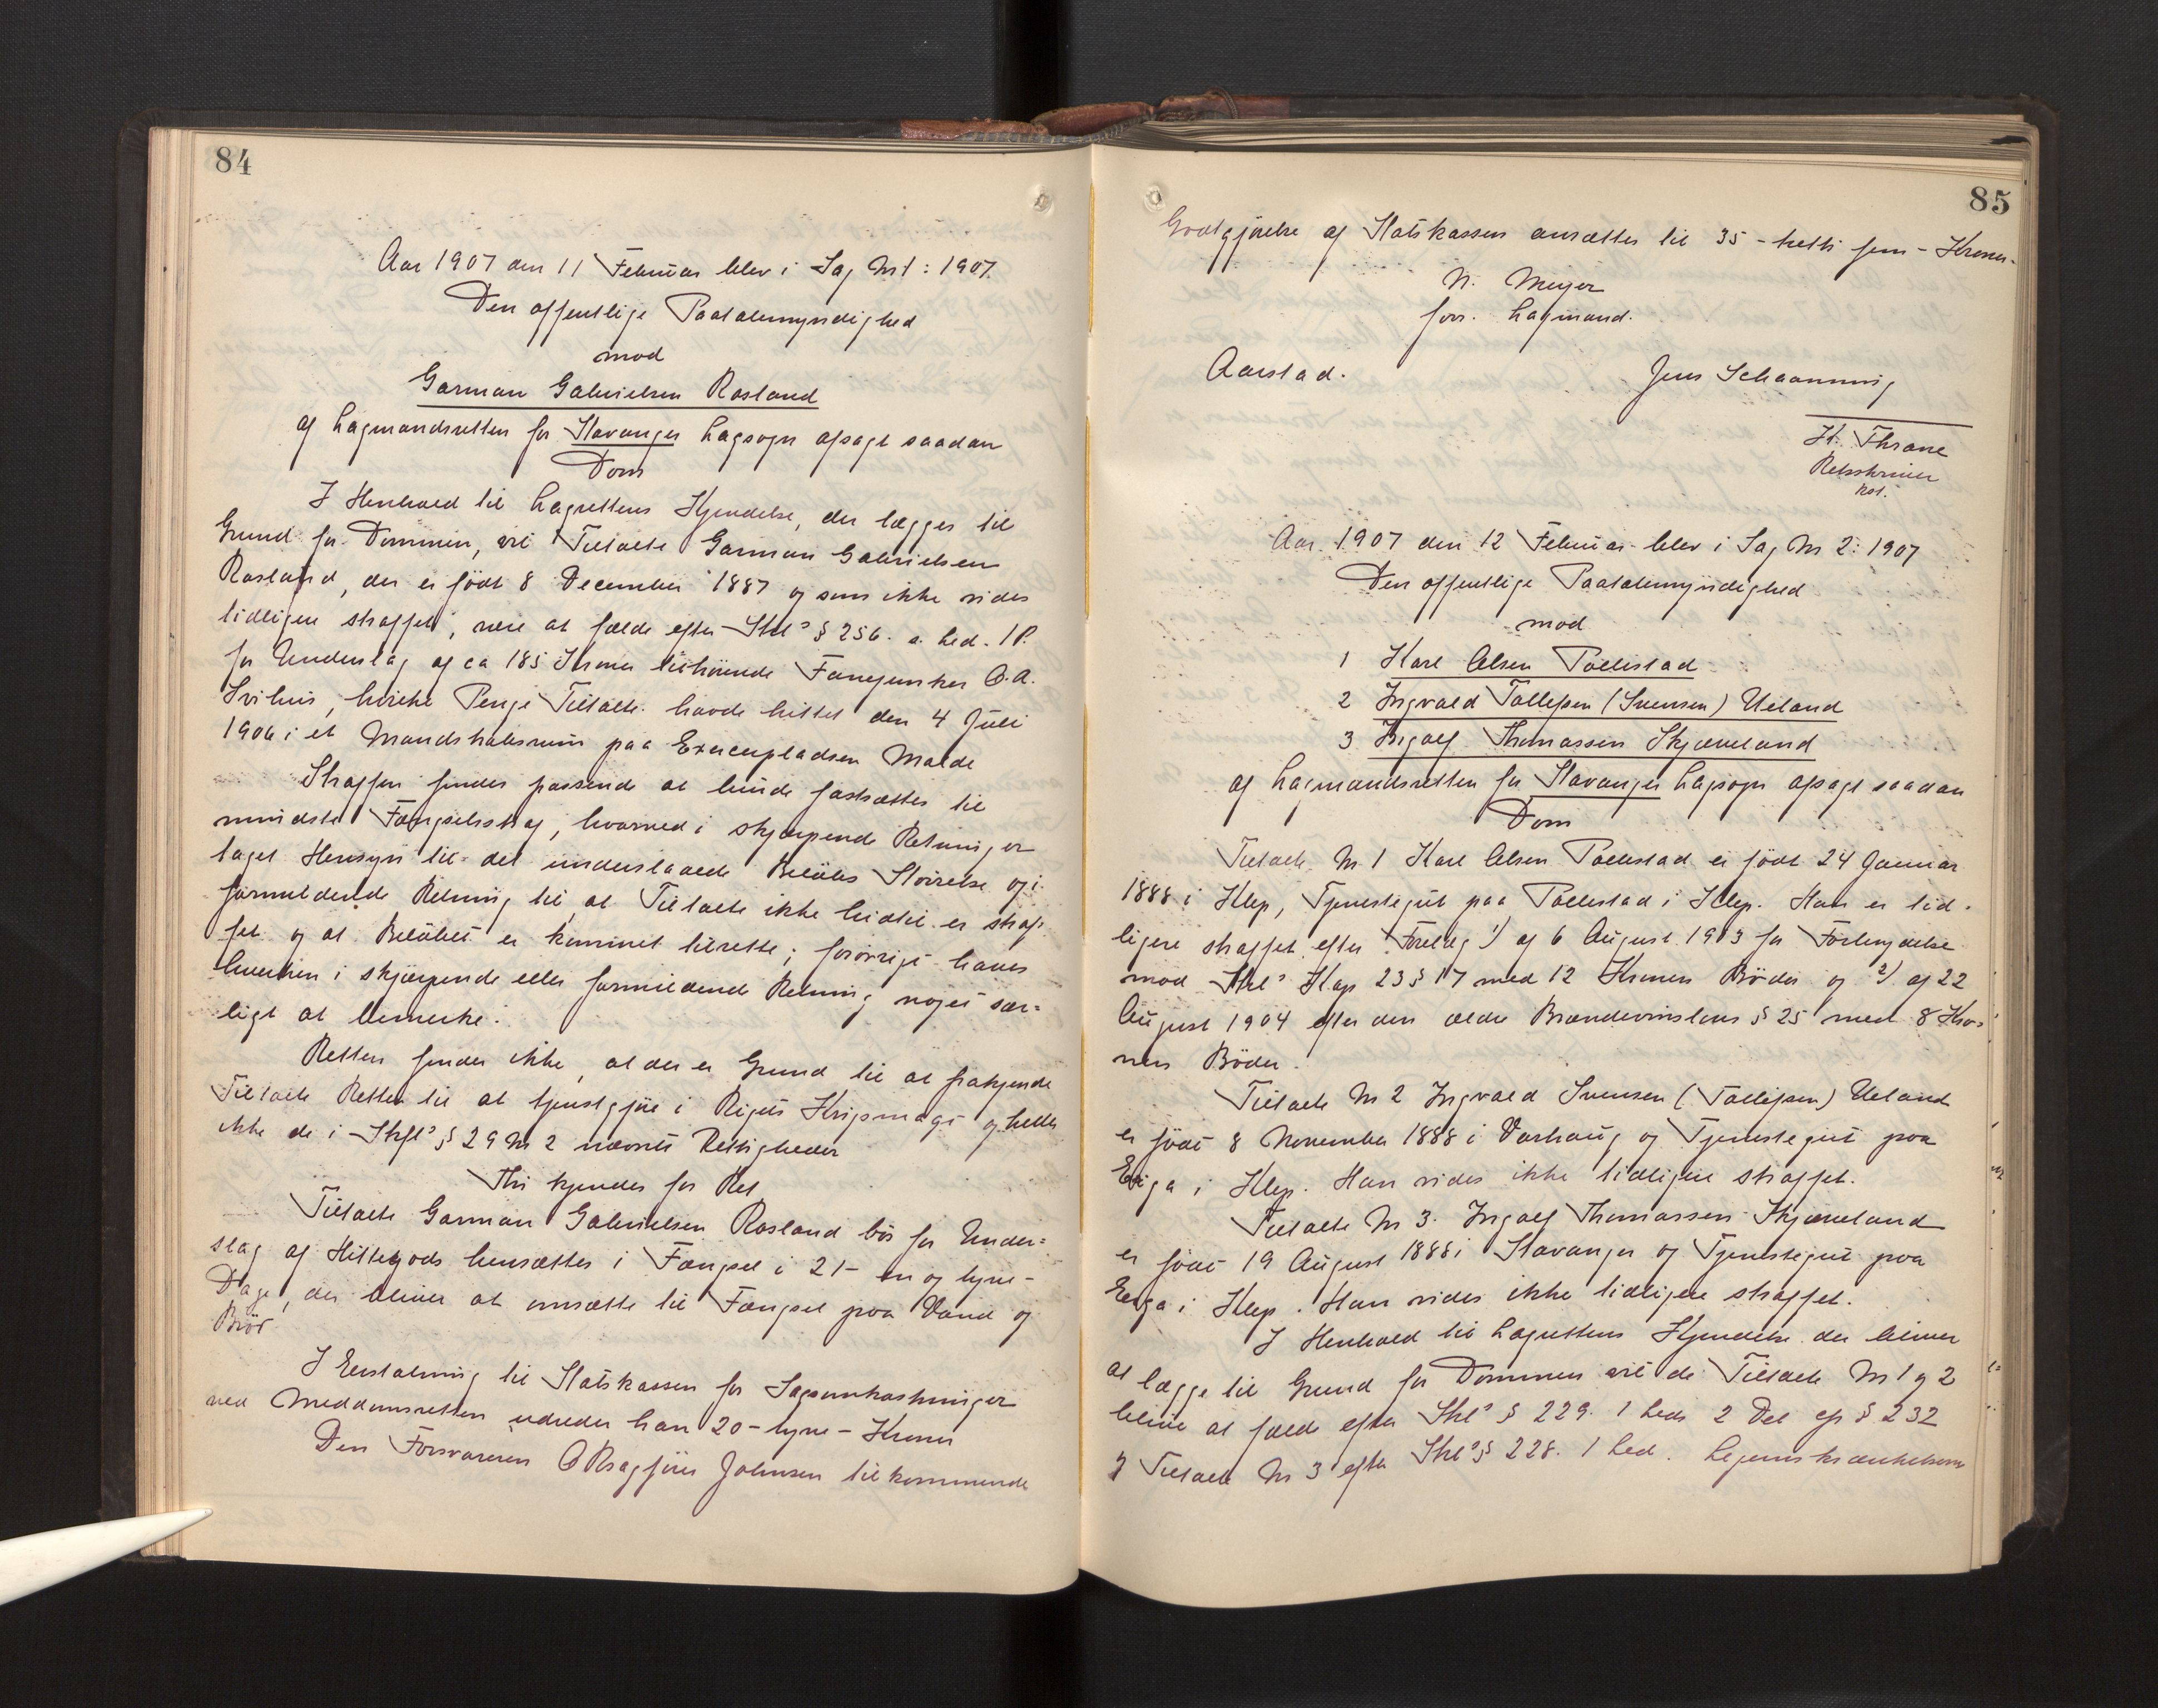 84
Aar 1907 den 11 Februar blev i Sag No 1: 1907
Den offentlige Paatalemyndighed
mod
Garman Gabrielsen Rosland
af Lagmandsretten for Stavanger Lagsogn afsagt saadan
Dom
I Henhold til Lagrettens Kjendelse, der lægges til
Grund for Dommen, vil Tiltalte Garman Gabrielsen
Rosland, der er født 8 December 1887 og som ikke vides
tidligere straffet, være at fælde efter Strl's § 256. a. Led. 1 P.
for Underslag af ca 185 Kroner tilhørende Fanejunker O. A.
Svihus, hvilke Penge Tiltalte havde hittet den 4 Juli
1906 i et Mandskabsrum paa Exercerpladsen Malde
Straffen findes passende at burde fastsættes til
mindste Fængselsstraf, hvorved i skjærpende Retning er
taget Hensyn til det underslaaede Beløbs Størrelse og i
formildende Retning til, at Tiltalte ikke hidtil er straf-
fet og at Beløbet er kommet tilrette; forøvrigt haves
hverken i skjærpende eller formildende Retning noget sær-
ligt at bemerke.
Retten finder ikke, at der er Grund til at frakjende
Tiltalte Retten til at tjenstgjøre i Rigets Krigsmagt og heller
ikke de i Strfl's § 29 No 2 nævnte Rettigheder
Thi kjendes for Ret
Tiltalte Garman Gabrielsen Rosland bør for Under-
slag af Hittegods hensættes i Fængsel i 21 - en og tyve -
Dage, der bliver at omsætte til Fængsel paa Vand og
Brød
I Erstatning til Statskassen for Sagsomkostninger
ved Meddomsretten udreder han 20 - tyve - Kroner
Den Forsvareren O Rsagfører Johnsen tilkommende
85
Godtgjørelse af Statskassen ansættes til 35 - tretti fem - Kroner.
N. Meyer
fov. Lagmand.
Aarstad. Jens Schaanning
Kr. Thrane
Retsskriver
kst.
Aar 1907 den 12 Februar blev i Sag No 2: 1907
Den offentlige Paatalemyndighed
mod
1 Karl Olsen Pollestad
2 Ingvald Tollefsen (Svensen) Ueland
3 Ingolf Thomassen Skjæveland
af Lagmandsretten for Stavanger Lagsogn afsagt saadan
Dom
Tiltalte No 1 Karl Olsen Pollestad er født 24 Januar
1888 i Klep, Tjenestegut paa Pollestad i Klep. Han er tid-
ligere straffet efter Forelæg 1) af 6 August 1903 for Forbrydelse
mod Strl's Kap 23 § 17 med 12 Kroners Bøder og 2) af 22
August 1904 efter den ældre Brændevinslovs § 25 med 8 Kro-
ners Bøder.
Tiltalte No 2 Ingvald Svensen (Tollefsen) Ueland
er født 8 November 1888 i Varhaug og Tjenestegut paa
Eriga i Klep. Han vides ikke tidligere straffet.
Tiltalte No 3. Ingolf Thomassen Skjæveland
er født 19 August 1888 i Stavanger og Tjenestegut paa
Erga i Klep. Han vides ikke tidligere straffet.
I Henhold til Lagrettens Kjendelse der bliver
at lægge til Grund for Dommen vil de Tiltalte No 1 og 2
blive at fælde efter Strl's § 229. 1 Led 2 Del cfr § 232
og Tiltalte No 3 efter Strl's § 228. 1 Led. Legemskrænkelserne